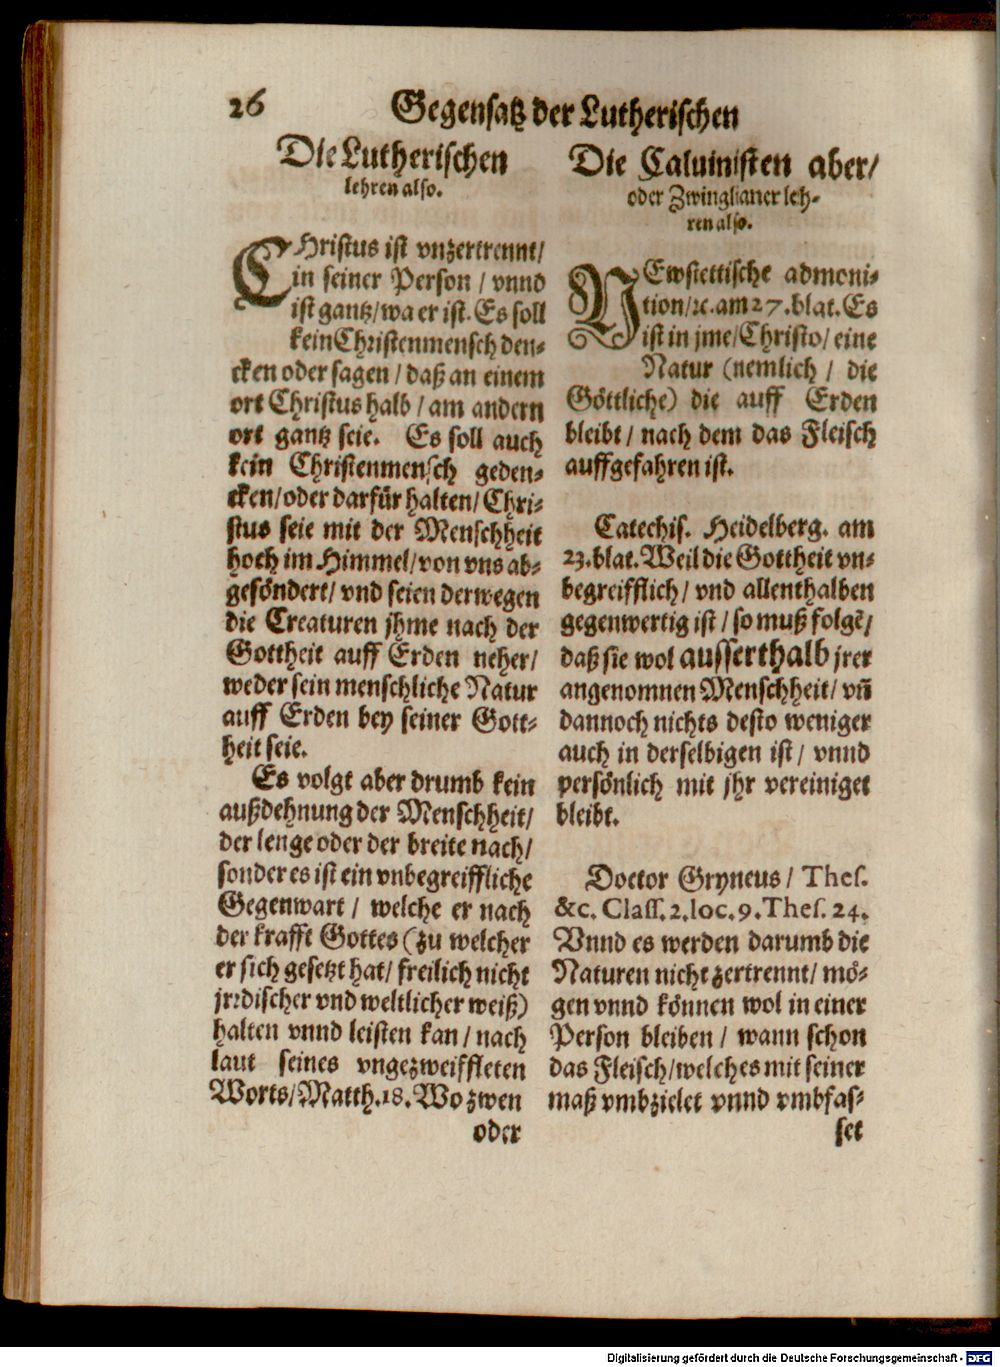 26
Gegensatz der Lutherischen
Die Lutherischen
lehren also.
CHristus ist vnzertrennt/
in seiner Person / vnnd
ist gantz/wa er ist. Es soll
kein Christenmensch den⸗
cken oder sagen / daß an einem
ort Christus halb / am andern
ort gantz seie. Es soll auch
kein Christenmensch geden⸗
cken/oder darfür halten/ Chri⸗
stus seie mit der Menschheit
hoch im Himmel/von vns ab⸗
gesöndert/ vnd seien derwegen
die Creaturen jhme nach der
Gottheit auff Erden neher/
weder sein menschliche Natur
auff Erden bey seiner Gott⸗
heit seie.
Es volgt aber drumb kein
außdehnung der Menschheit/
der lenge oder der breite nach/
sonder es ist ein vnbegreiffliche
Gegenwart / welche er nach
der krafft Gottes (zu welcher
er sich gesetzt hat/ freilich nicht
jrrdischer vnd weltlicher weiß)
halten vnnd leisten kan / nach
laut seines vngezweiffleten
Worts/Matth.18. Wo zwen
oder
Die Caluinisten aber/
oder Zwinglianer leh⸗
ren also.
NEwstettische admoni⸗
tion/ꝛc. am 27. blat. Es
ist in jme/Christo/ eine
Natur (nemlich / die
Göttliche) die auff Erden
bleibt / nach dem das Fleisch
auffgefahren ist.
Catechis. Heidelberg. am
23. blat. Weil die Gottheit vn⸗
begreifflich / vnd allenthalben
gegenwertig ist / so muß folgẽ/
daß sie wol ausserthalb jrer
angenomnen Menschheit/ vñ
dannoch nichts desto weniger
auch in derselbigen ist / vnnd
persönlich mit jhr vereiniget
bleibt.
Doctor Gryneus / Thes.
&c. Class. 2. loc. 9. Thes. 24.
Vnnd es werden darumb die
Naturen nicht zertrennt/ mö⸗
gen vnnd können wol in einer
Person bleiben / wann schon
das Fleisch/welches mit seiner
maß vmbzielet vnnd vmbfas⸗
set
Digitalisierung gefördert durch die Deutsche Forschungsgemeinschaft - DFG